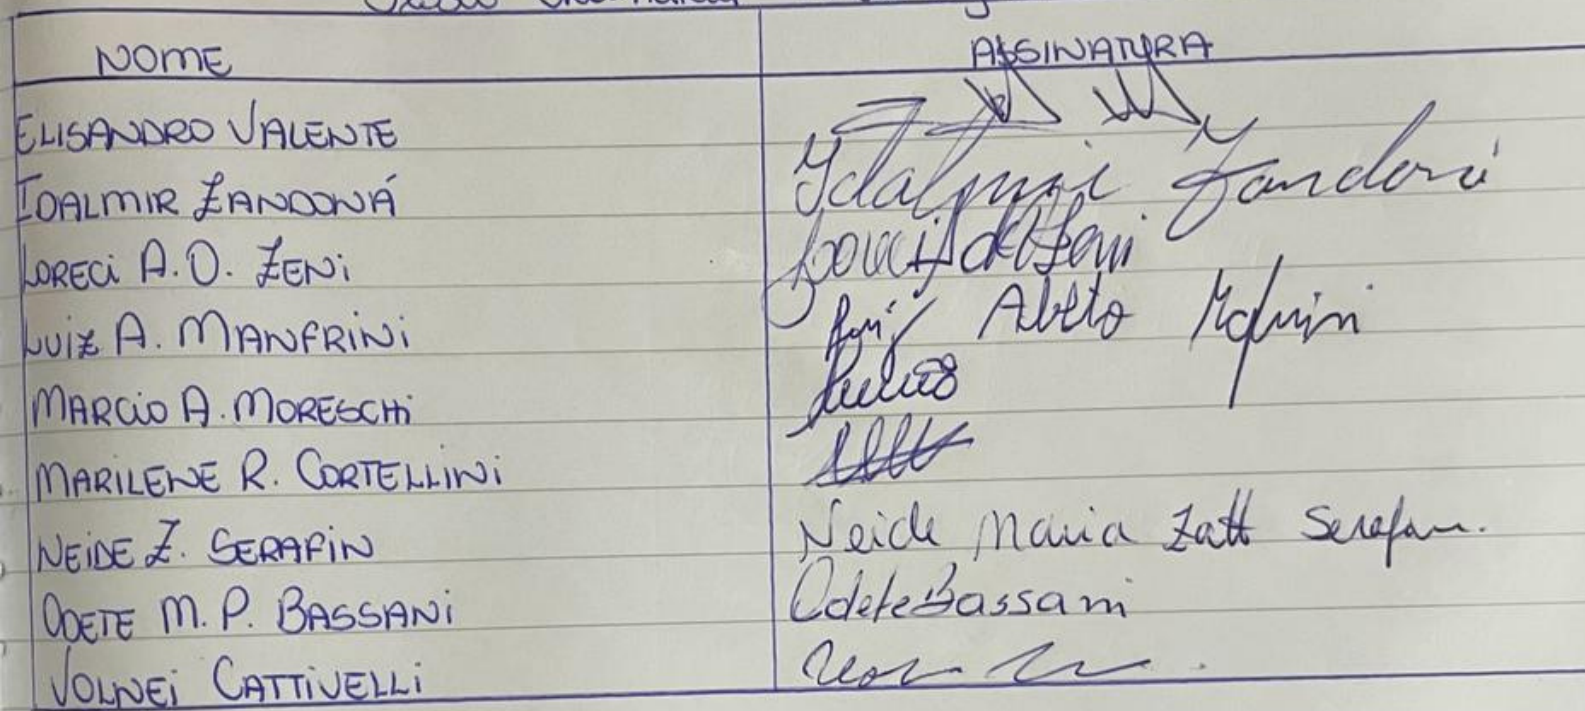 NOME ASSINATURA
ELISANDRO VALENTE
IDALMIR ZANDONÁ Idalmir Zandoná
LORECI A.O. ZENI
LUIZ A. MANFRINI
MARCIO A. MORESCHI
MARILENE R. CORTELLINI
NEIDE Z. SERAFIN Neide Maria Zatt Serafin.
ODETE M. P. BASSANI Odete Bassani
VOLNEI CATTIVELLI